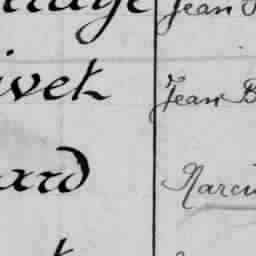 Jean
ivet Jean B
ard Narci